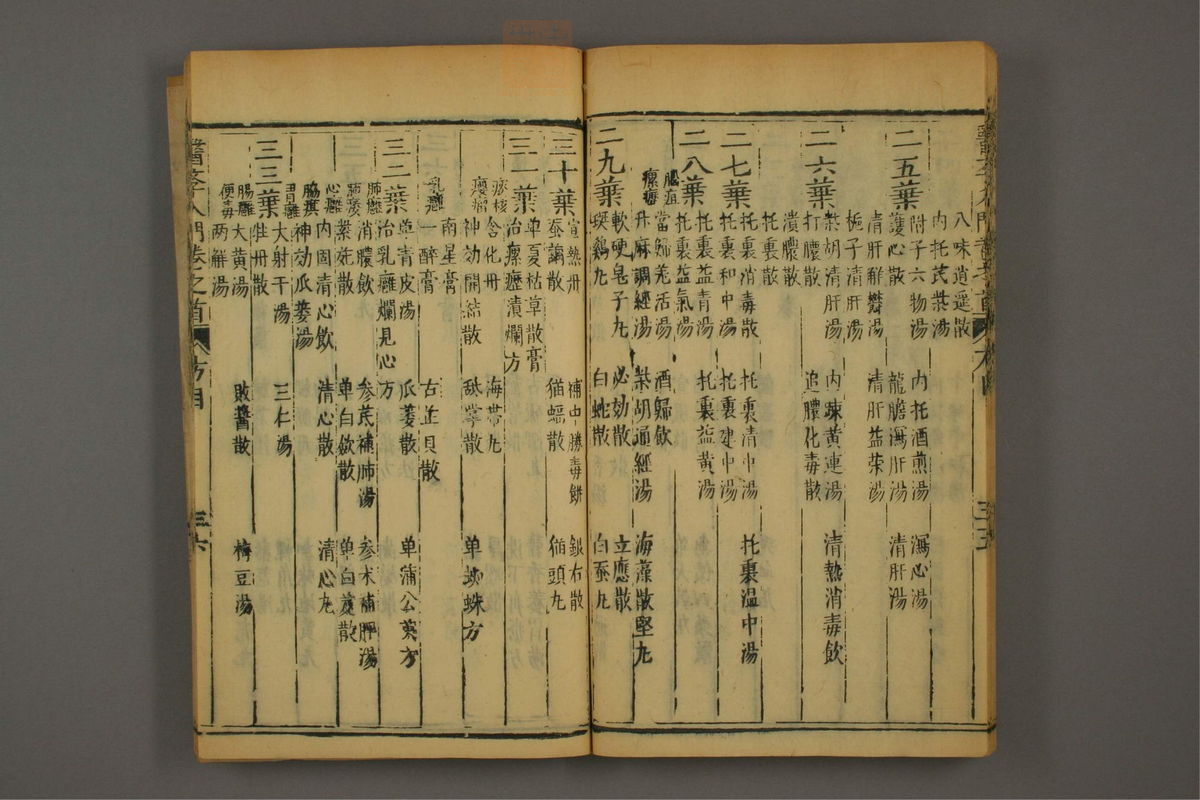 八味逍遥散
内托芪柴湯
二五葉
附子六物湯 内托酒煎湯 瀉心湯
護心散 龍膽瀉肝湯 清肝湯
清肝解鬱湯 清肝益榮湯
梔子清肝湯
二六葉
柴胡清肝湯 内疎黄連湯 清熱消毒飲
打膿散 追膿化毒散
潰膿散
托裏散
二七葉
托裏消毒散 托裏清中湯 托裏温中湯
托裏和中湯 托裏建中湯
二八葉
托裏益青湯 托裏益黄湯
托裏益氣湯
當歸羌活湯 酒歸飲
瘰癧
升麻調經湯 柴胡通經湯 海藻散堅丸
二九葉
軟硬皂子丸 必効散 立應散
白蛇散 白蚕丸
三十葉
宣熱丹 補中勝毒餅 銀右散
蚕繭散 猫蝠散 猫頭丸
三一葉
单夏枯草散膏
治瘰癧潰爛方
痰核
癭瘤
含化丹 海帶丸
神効開結散 舔掌散 单蜘蛛方
南星膏
乳癰
一醉膏 古芷貝散
三二葉
单青皮湯 瓜蔞散 单蒲公英方
治乳癰爛見心方
肺癰
肺痿
消膿飲 参芪補肺湯 参术補脾湯
紫菀散 单白蘞散 单白芨散
心癰
内固清心飲 清心散 清心丸
脇癰
神効瓜蔞湯
三三葉
胃癰
大射干湯 三仁湯
牡丹散
腸癰
便毒
大黄湯 敗醬散 梅豆湯
两解湯
醫學入門卷之首 方目 三六